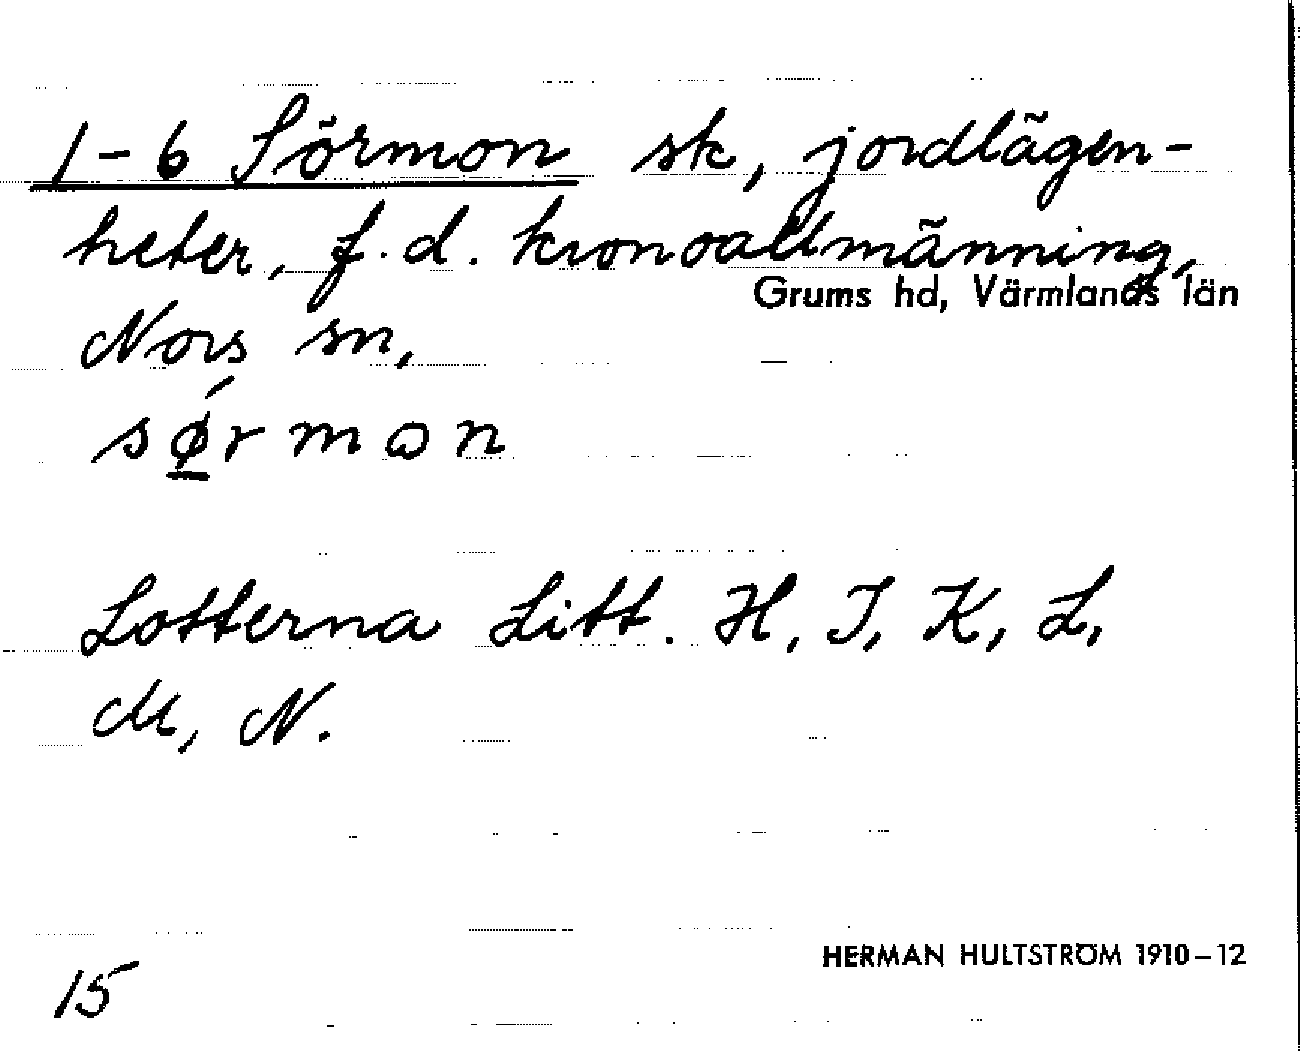 1-6 Sörmon sk, jordlägen-
heter, f.d. kronoallmänning,
Grums hd, Värmlands län
Nors sn,
sǿ̲rmɷn
Lotterna Litt. H, I, K, L,
M, N.
HERMAN HULTSTRÖM 1910-12
15